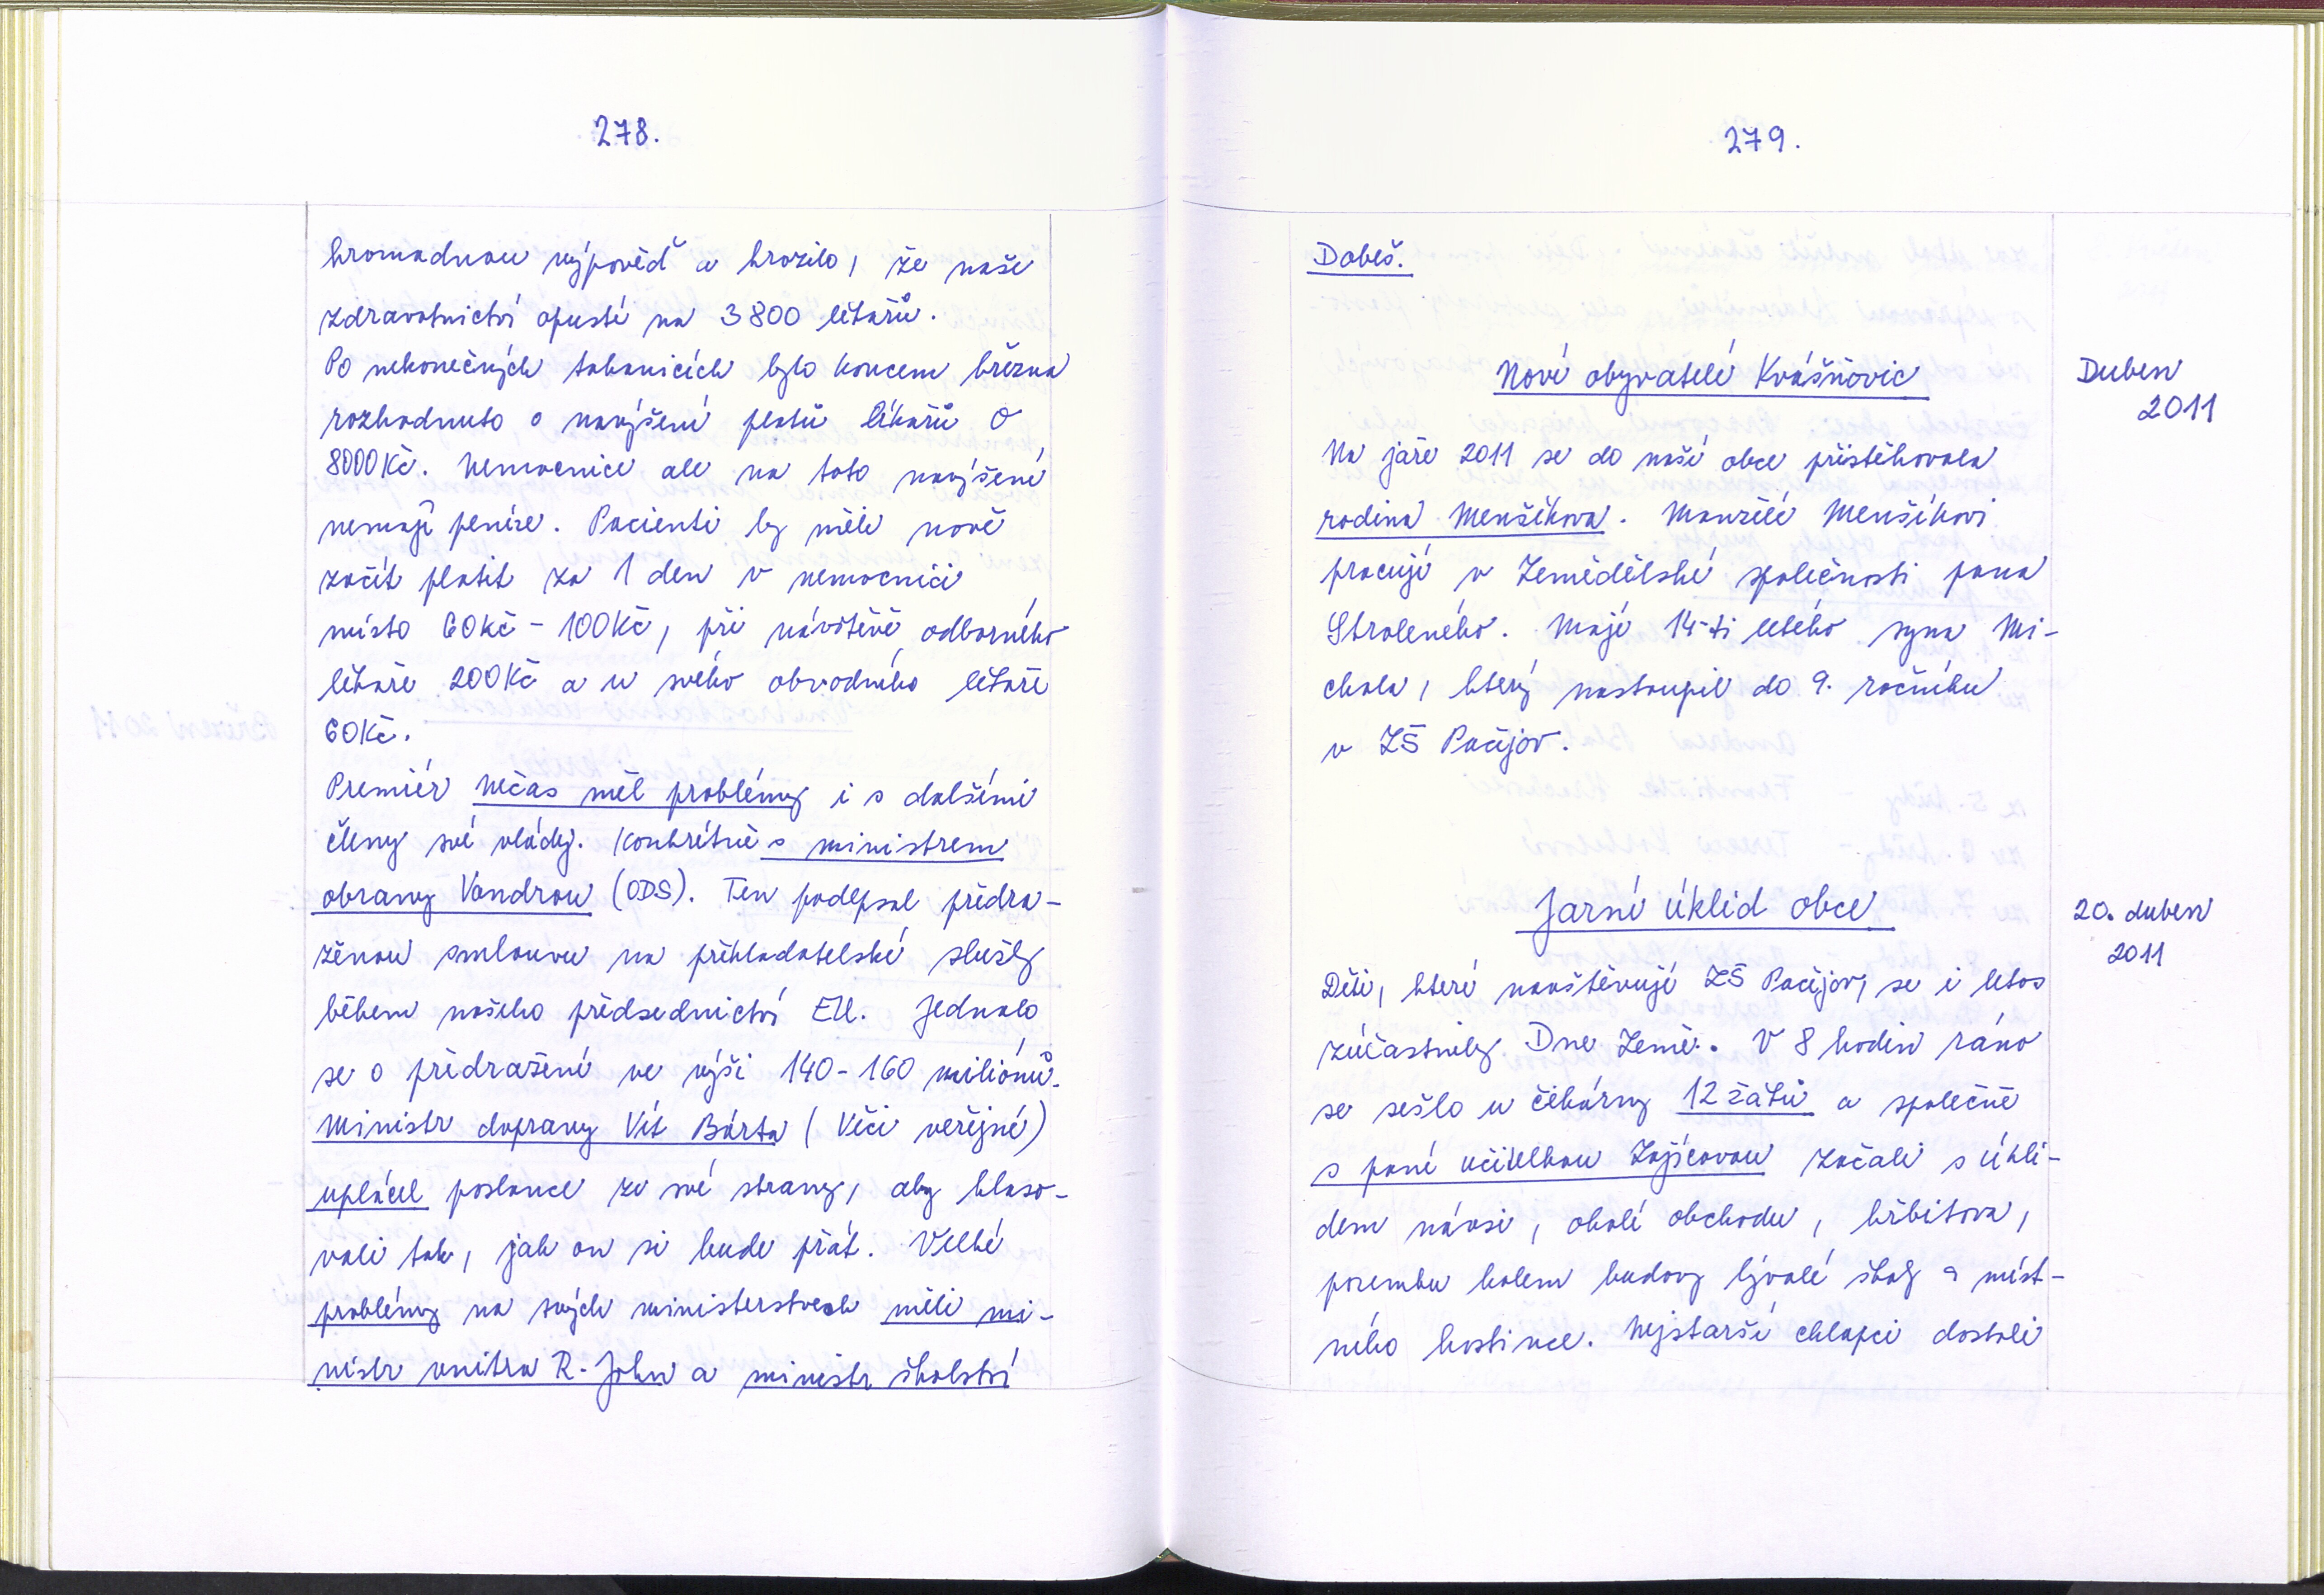 278.
hromadnou výpověď a hrozilo, že naše
zdravotnictví opustí na 3800 lékařů.
Po nekonečných tahanicích bylo koncem března
rozhodnuto o navýšení platů lékařů o
8000Kč. Nemocnice ale na toto navýšení
nemají peníze. Pacienti by měli nově
začít platit za 1 den v nemocnici
místo 60Kč - 100Kč, při návštěvě odborného
lékaře 200Kč a u svého obvodního lékaře
60Kč.
Premiér Nečas měl problémy i s dalšími
členy své vlády. Konkrétně s ministrem
obrany Vondrou (ODS). Ten podepsal předra-
ženou smlouvu na překladatelské služby
během našeho předsednictví EU. Jednalo
se o předražení ve výši 140-160 miliónů.
Ministr dopravy Vít Bárta (Věci veřejné)
uplácel poslance ze své strany, aby hlaso-
vali tak, jak on si bude přát. Velké
problémy na svých ministerstvech měli mi-
nistr vnitra R. John a ministr školství
279.
Dobeš.
Noví obyvatelé Kvášňovic
Duben
2011
Na jaře 2011 se do naší obce přistěhovala
rodina Menšíkova. Manželé Menšíkovi
pracují v Zemědělské společnosti pana
Stroleného. Mají 14-ti letého syna Mi-
chala, který nastoupil do 9. ročníku
v ZŠ Pačejov.
Jarní úklid obce
20. duben
2011
Děti, které navštěvují ZŠ Pačejov, se i letos
zúčastnily Dne Země. V 8 hodin ráno
se sešlo u čekárny 12 žáků a společně
s paní učitelkou Zajícovou začali s úkli-
dem návsi, okolí obchodu, hřbitova,
pozemku kolem budovy bývalé školy a míst-
ního hostince. Nejstarší chlapci dostali